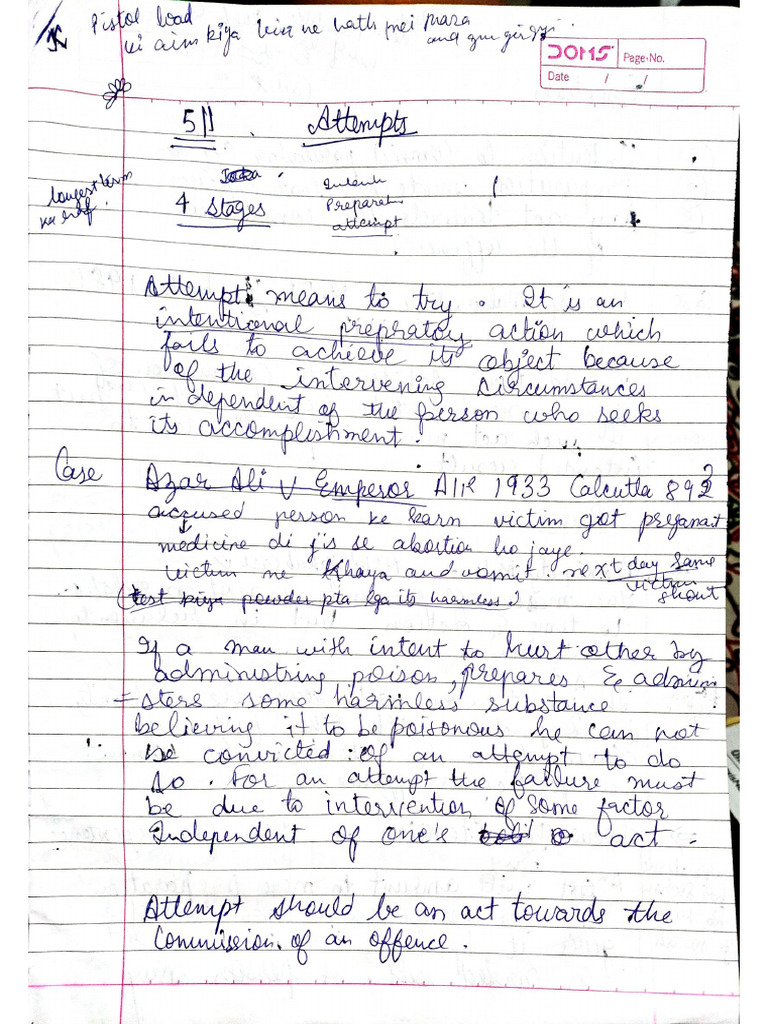 Pistol load
ki aim kiya kisi ne hath mei mara
and gun gir gyi
DOMS
Page No.
Date / /
511 Attempts
longest term
ka half
4 Stages
Intent
Preparat
attempt
Attempt means to try. It is an
intentional prepratory action which
fails to achieve its object because
of the intervening circumstances
independent of the person who seeks
its accomplishment.
Case Azar Ali V Emperor AIR 1933 Calcutta 892?
accused person ke karn victim got preganat
medicine di jis se abortion ho jaye.
victim ne khaya and vomit. next day same
victim
shout
(test kiya powder pta lga its harmless)
If a man with intent to hurt other by
administring poison, prepares & admini
=sters some harmless substance
believing it to be poisonous he can not
be convicted of an attempt to do
so. For an attempt the failure must
be due to intervention of some factor
Independent of one's act.
Attempt should be an act towards the
Commission of an offence.